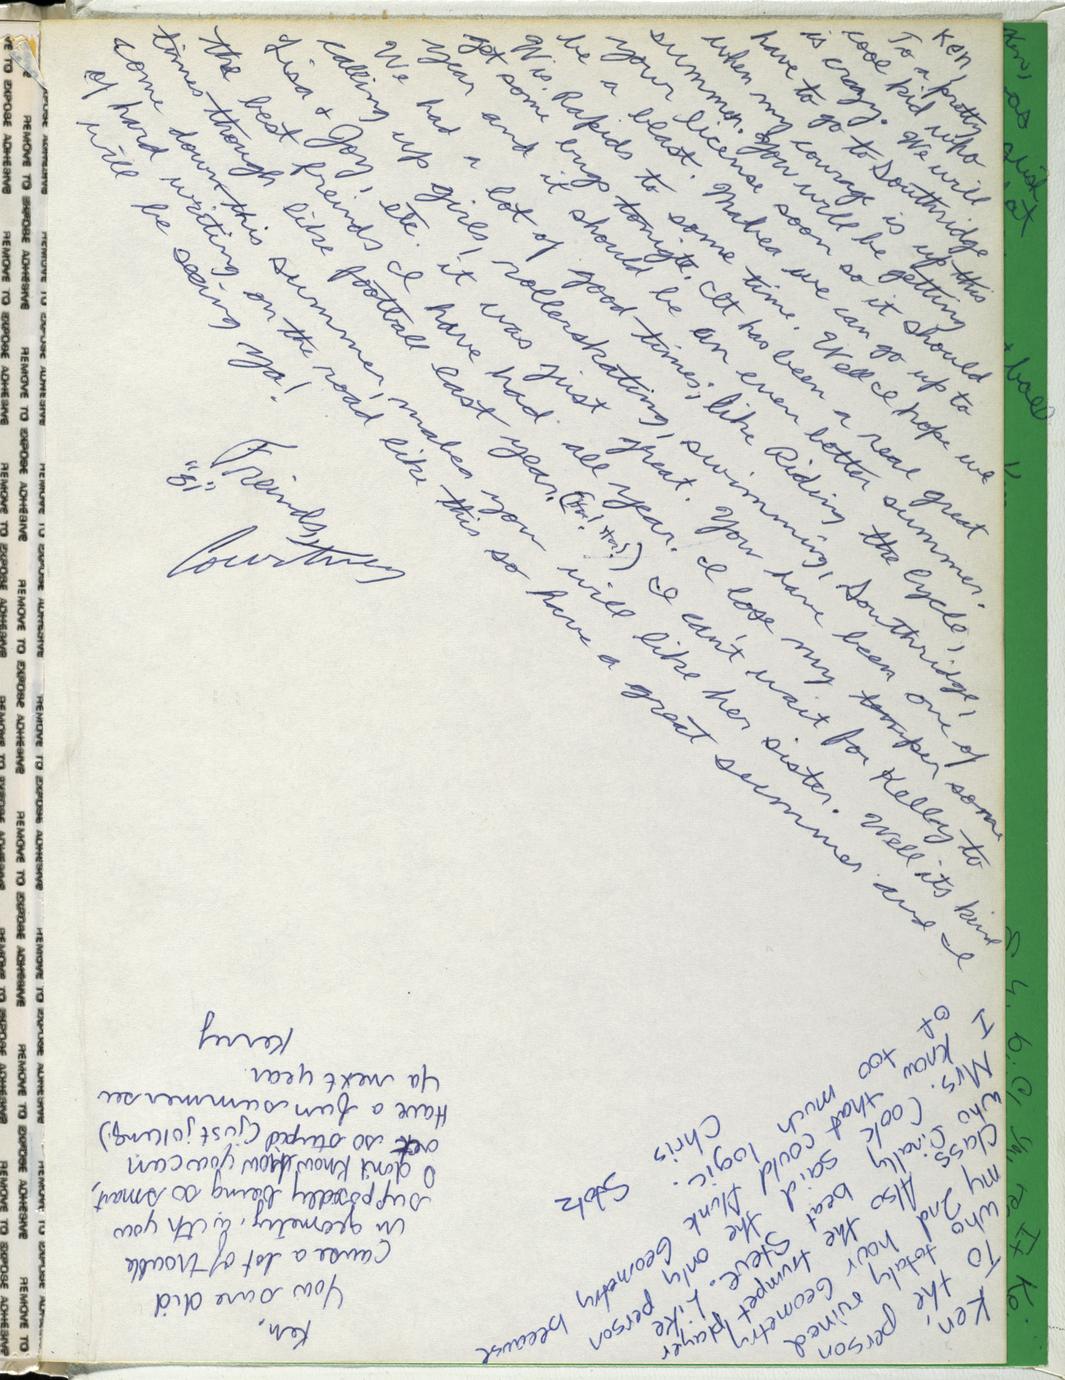 Ken,
To a pretty
cool kid who
is crazy. We will
have to go to Southridge
when my courage is up this
summer. You will be getting
your license soon so it should
be a blast. Mabea we can go up to
Wis. Rapids to some time. Well I hope we
get some bugs tonyte. It has been a real great
year and it should be an even better summer.
We had a lot of good times, like Riding the cycle,
calling up girls, rollerskating, swimming, Southridge,
Lisa + Joy, etc. it was just great. You have been one of
the best freinds I have had all year. I lose my temper some
times though like football last year. (Ha! Ha!) I can't wait for Kelley to
come down this summer, mabea you will like her sister. Well its kind
of hard writing on the road like this so have a great summer and I
will be seeing ya!
Freinds,
Courtney
"81"
Ken,
You sure did
cause a lot of trouble
in geometry. With you
supposedly being so smart,
I don't know how you can
act so stuped (just joking.)
Have a fun summer see
ya next year.
Kerry
Ken,
To the person
who totaly ruined
my 2nd hour Geometry
class. Also the trumpet player
who finally beat Steve. Like
Mrs. Cook said the only person
I know that could flunk Geometry because
of too much logic.
Chris Stolz
REMOVE TO EXPOSE ADHESIVE